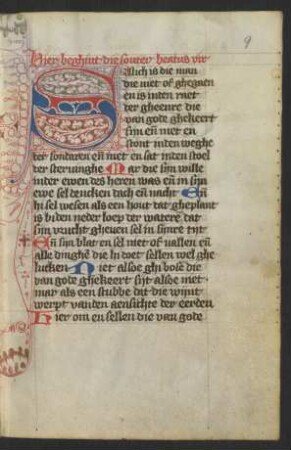 9
Hier beghint die souter beatus vir
Alich is die man
die niet of ghegaen
en is inden raet
der gheenre die
van gode ghekeert
sijn eñ niet en
stont inden weghe
der sondaren eñ niet en sat inden stoel
der steruinghe Mar die sijn wille
inder ewen des heren was eñ in sijn
ewe sel dencken dach eñ nacht En
hi sel wesen als een hout dat gheplant
is biden neder loep der watere dat
sijn vrucht gheuen sel in sinre tijt
En sijn blat en sel niet of vallen eñ
alle dinghe die hi doet sellen wel ghe
lucken Niet also ghi bose die
van gode ghekeert sijt also niet
mar als een stubbe dat die wijnt
werpt vanden aensichte der eerden
Hier om en sellen die van gode